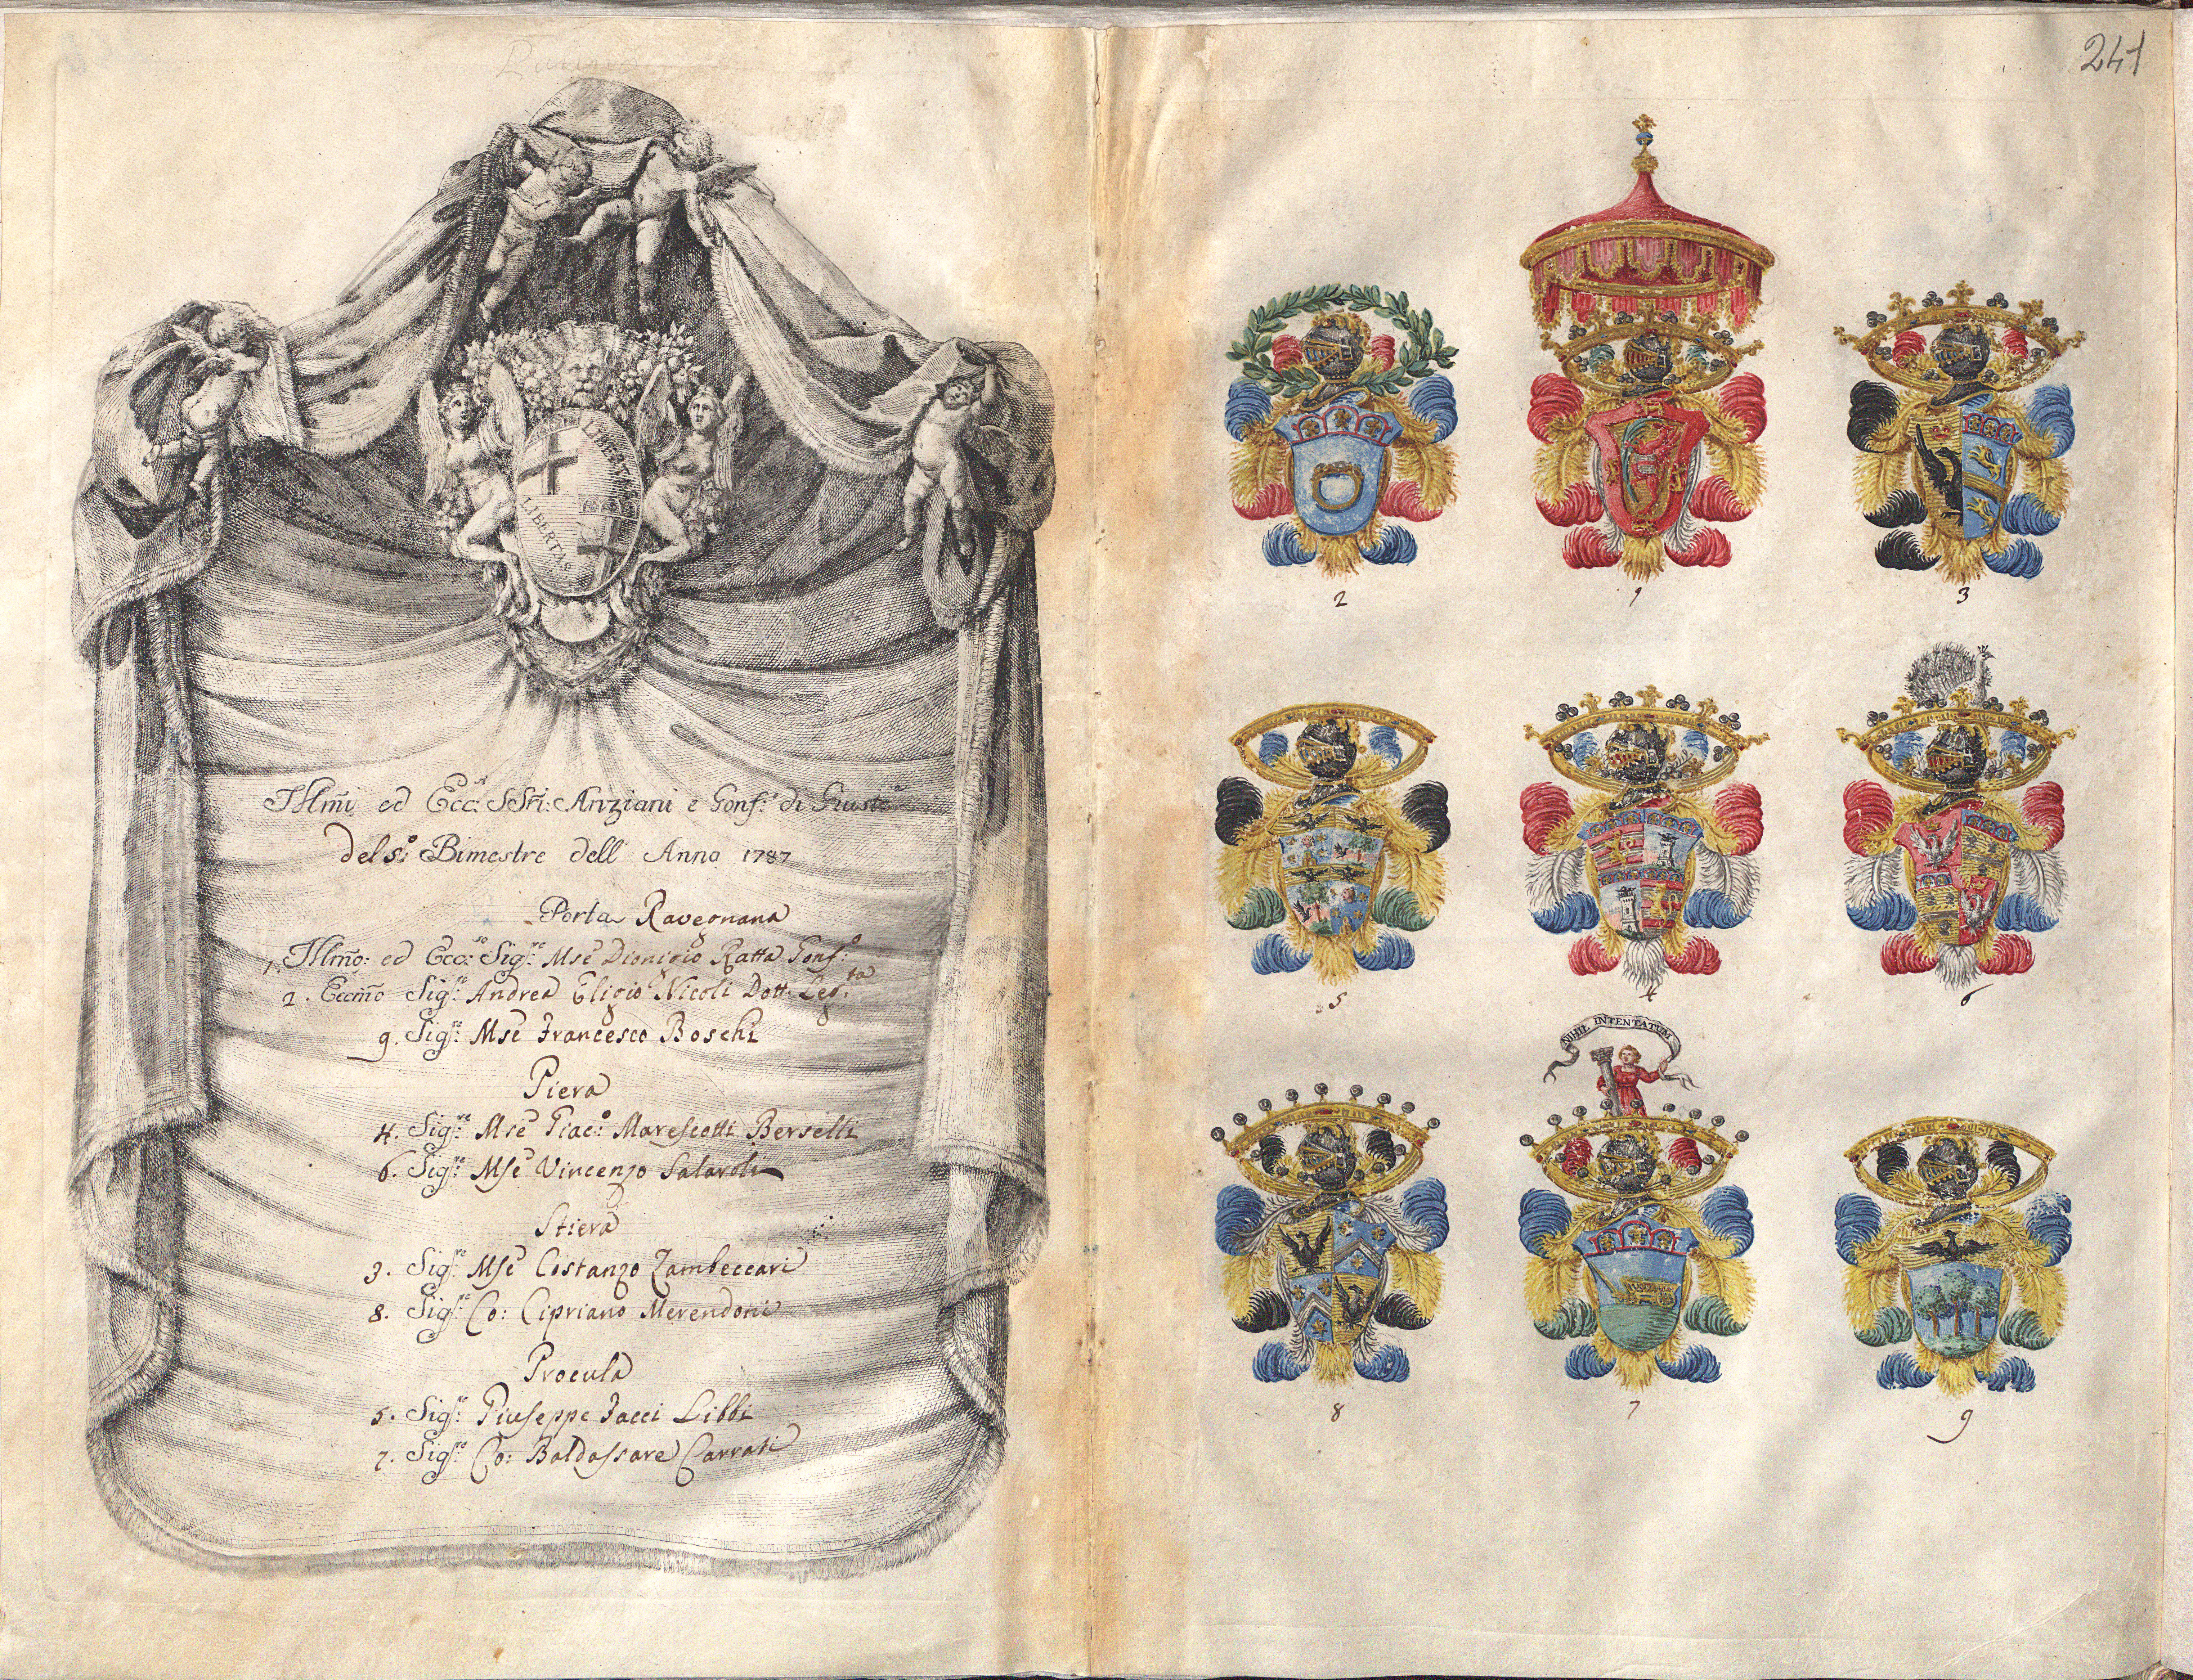 241
LIBERTAS
LIBERTAS
Jllm̃i ed Ecc:ⁱ SSri: Anziani e Gonf:ᵉ di Giustᵃ
del 5:º Bimestre dell' Anno 1787
Porta Ravegnana
1. Jllm̃o: ed Ecc:ˢᵒ Sigʳ:ᵉ Mse Dionigio Ratta Gonf:º
2. Eccm̃o Sigʳ:ᵉ Andrea Eligio Nicoli Dott. Leg:ᵗᵃ
9. Sigʳ:ᵉ Mse Francesco Boschi
Piera
4. Sigʳ:ᵉ Mse Giac:º Marescotti Berselli
6. Sigʳ:ᵉ Mse Vincenzo Salaroli
Stiera
3. Sigʳ:ᵉ Mse Costanzo Zambeccari
8. Sigʳ:ᵉ Co: Cipriano Merendoni
Procula
5. Sigʳ:ᵉ Giuseppe Jacci Libbi
7. Sigʳ:ᵉ Co: Baldassare Carrati
2 1 3
5 4 6
NIHIL INTENTATUM
8 7 9